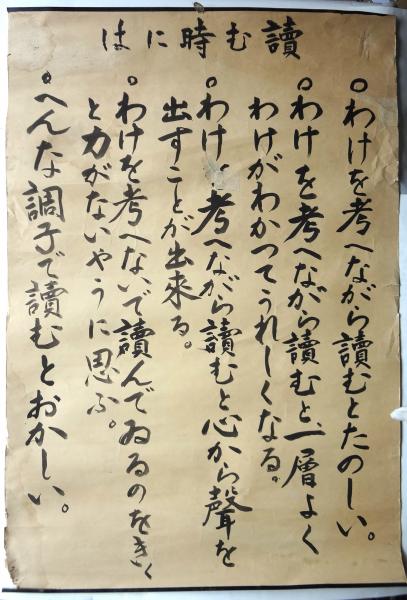 讀む時には
○わけを考へながら讀むとたのしい。
○わけを考へながら讀むと、一層よく
わけがわかつてうれしくなる。
○わけ 考へながら讀むと心から聲を
出すことが出來る。
○わけを考へないで讀んでゐるのをきく
と力がないやうに思ふ。
○へんな調子で讀むとおかしい。